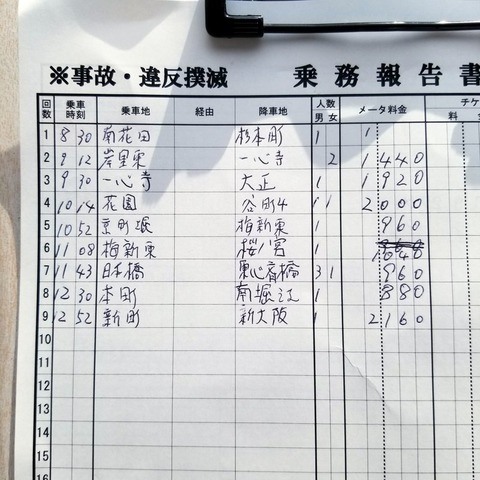 ※事故・違反撲滅 乗務報告書
回数 乗車時刻 乗車地 経由 降車地 人数 男 女 メータ料金 チケ 料 金
1 8 30 南花田 杉本町 1 1
2 9 12 岸里東 一心寺 2 1440
3 9 30 一心寺 大正 1 1920
4 10 14 花園 谷町4 1 1 2000
5 10 52 京町堀 梅新東 1 960
6 11 08 梅新東 桜ノ宮 1 1040
7 11 43 日本橋 東心斎橋 3 1 960
8 12 30 本町 南堀江 1 880
9 12 52 新町 新大阪 1 2160
10
11
12
13
14
15
16